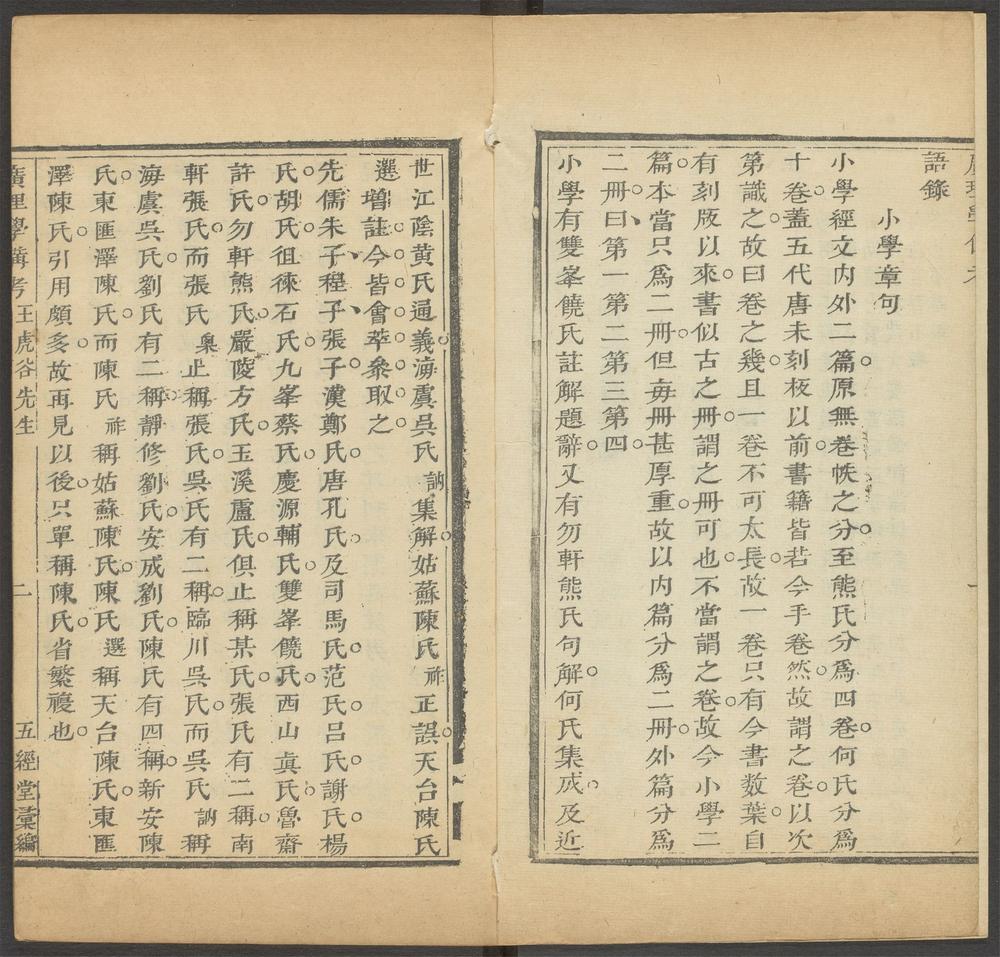 語錄
小學章句
小學經文内外二篇。原無卷帙之分。至熊氏分爲四卷。何氏分爲
十卷。蓋五代唐末刻板以前。書籍皆若今手卷然。故謂之卷。以次
第識之。故曰卷之幾。且一卷不可太長。故一卷只有今書数葉。自
有刻版以來。書似古之冊。謂之冊可也。不當謂之卷。故今小學二
篇。本當只爲二冊。但每冊甚厚重。故以内篇分爲二冊。外篇分爲
二冊。曰、第一第二第三第四。
小學有雙峯饒氏註解題辭。又有勿軒熊氏句解。何氏集成。及近
世江陰黄氏通義。海虞吳氏訥集解。姑蘇陳氏祚正誤。天台陳氏
選增註。今皆會萃叅取之。
先儒朱子、程子、張子。漢鄭氏。唐孔氏。及司馬氏。范氏。吕氏。謝氏。楊
氏。胡氏。徂徠石氏。九峯蔡氏。慶源輔氏。雙峯饒氏。西山真氏。魯齋
許氏。勿軒熊氏。嚴陵方氏。玉溪盧氏。俱止稱某氏。張氏有二。稱南
軒張氏。而張氏㮚止稱張氏。吳氏有二。稱臨川吳氏。而吳氏訥稱
海虞吳氏。劉氏有二。稱靜修劉氏。安成劉氏。陳氏有四。稱新安陳
氏。東匯澤陳氏。而陳氏祚稱姑蘇陳氏。陳氏選稱天台陳氏。東匯
澤陳氏。引用頗多。故再見以後。只單稱陳氏。省繁複也。
廣理學備考 王虎谷先生 二 五經堂彙編